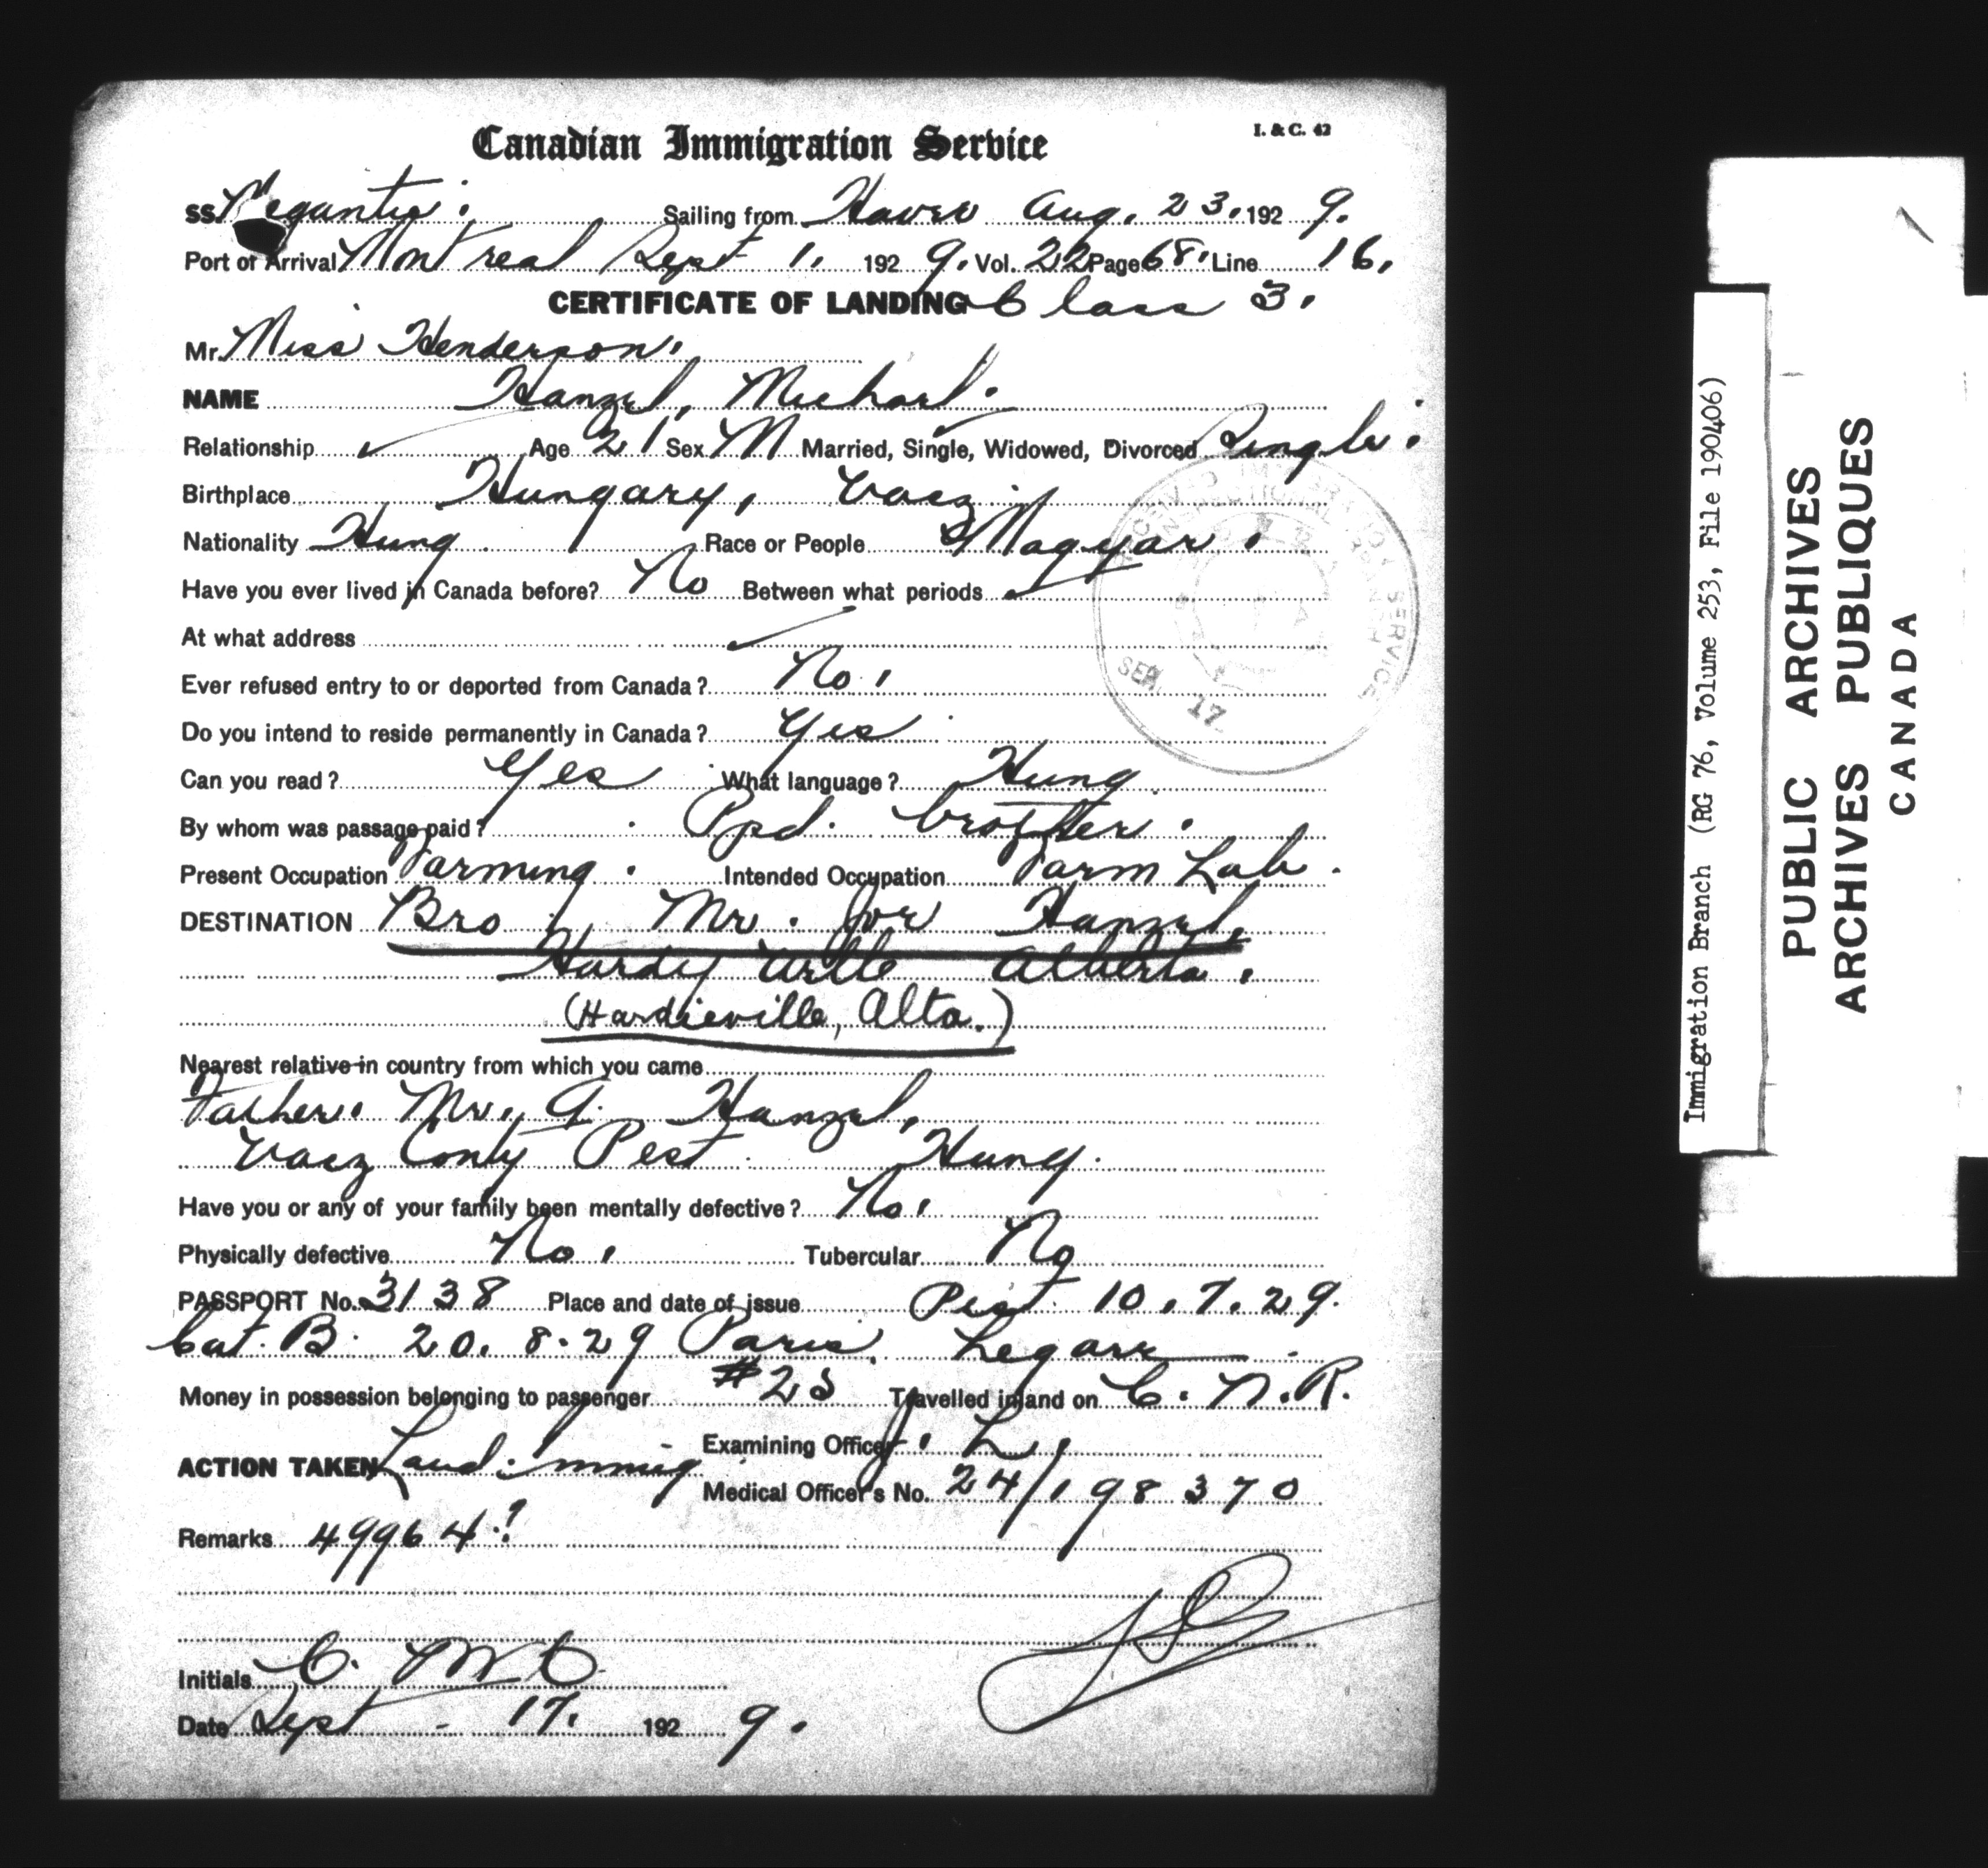 Canadian Immigration Service
I. & C. 42
SS. Megantic. Sailing from Havre Aug. 23. 192 9.
Port of Arrival Montreal Sept 1. 192 9. Vol. 22 Page 68. Line 16.
CERTIFICATE OF LANDING Class 3.
Mr. Miss Henderson.
NAME Hanzel, Michael.
Relationship ✓ Age 21 Sex M Married, Single, Widowed, Divorced Single.
Birthplace Hungary, Vacz.
Nationality Hung Race or People Magyar.
Have you ever lived in Canada before? No Between what periods ✓
At what address ✓
Ever refused entry to or deported from Canada? No.
Do you intend to reside permanently in Canada? Yes
Can you read? Yes What language? Hung
By whom was passage paid? Ppd. brother.
Present Occupation Farming. Intended Occupation Farm Lab.
DESTINATION Bro. Mr. Joe Hanzel,
Hardy ville Alberta.
(Hardieville, Alta.)
Nearest relative in country from which you came
Father. Mr. A. Hanzel,
Vacz Conty Pest. Hung.
Have you or any of your family been mentally defective? No.
Physically defective No. Tubercular No
PASSPORT No. 3138 Place and date of issue Pest 10.7.29.
Cat. B. 20.8.29 Paris. Legare
Money in possession belonging to passenger #25 Travelled inland on C.N.R.
ACTION TAKEN Land. immig Examining Officer J. L.
Medical Officer's No. 24/198370
Remarks 49964.
Initials C.
Date Sept - 17. 192 9.
IMMIGRATION SERVICE
SEP 17
Immigration Branch (RG 76, Volume 253, File 190406)
PUBLIC ARCHIVES
ARCHIVES PUBLIQUES
CANADA